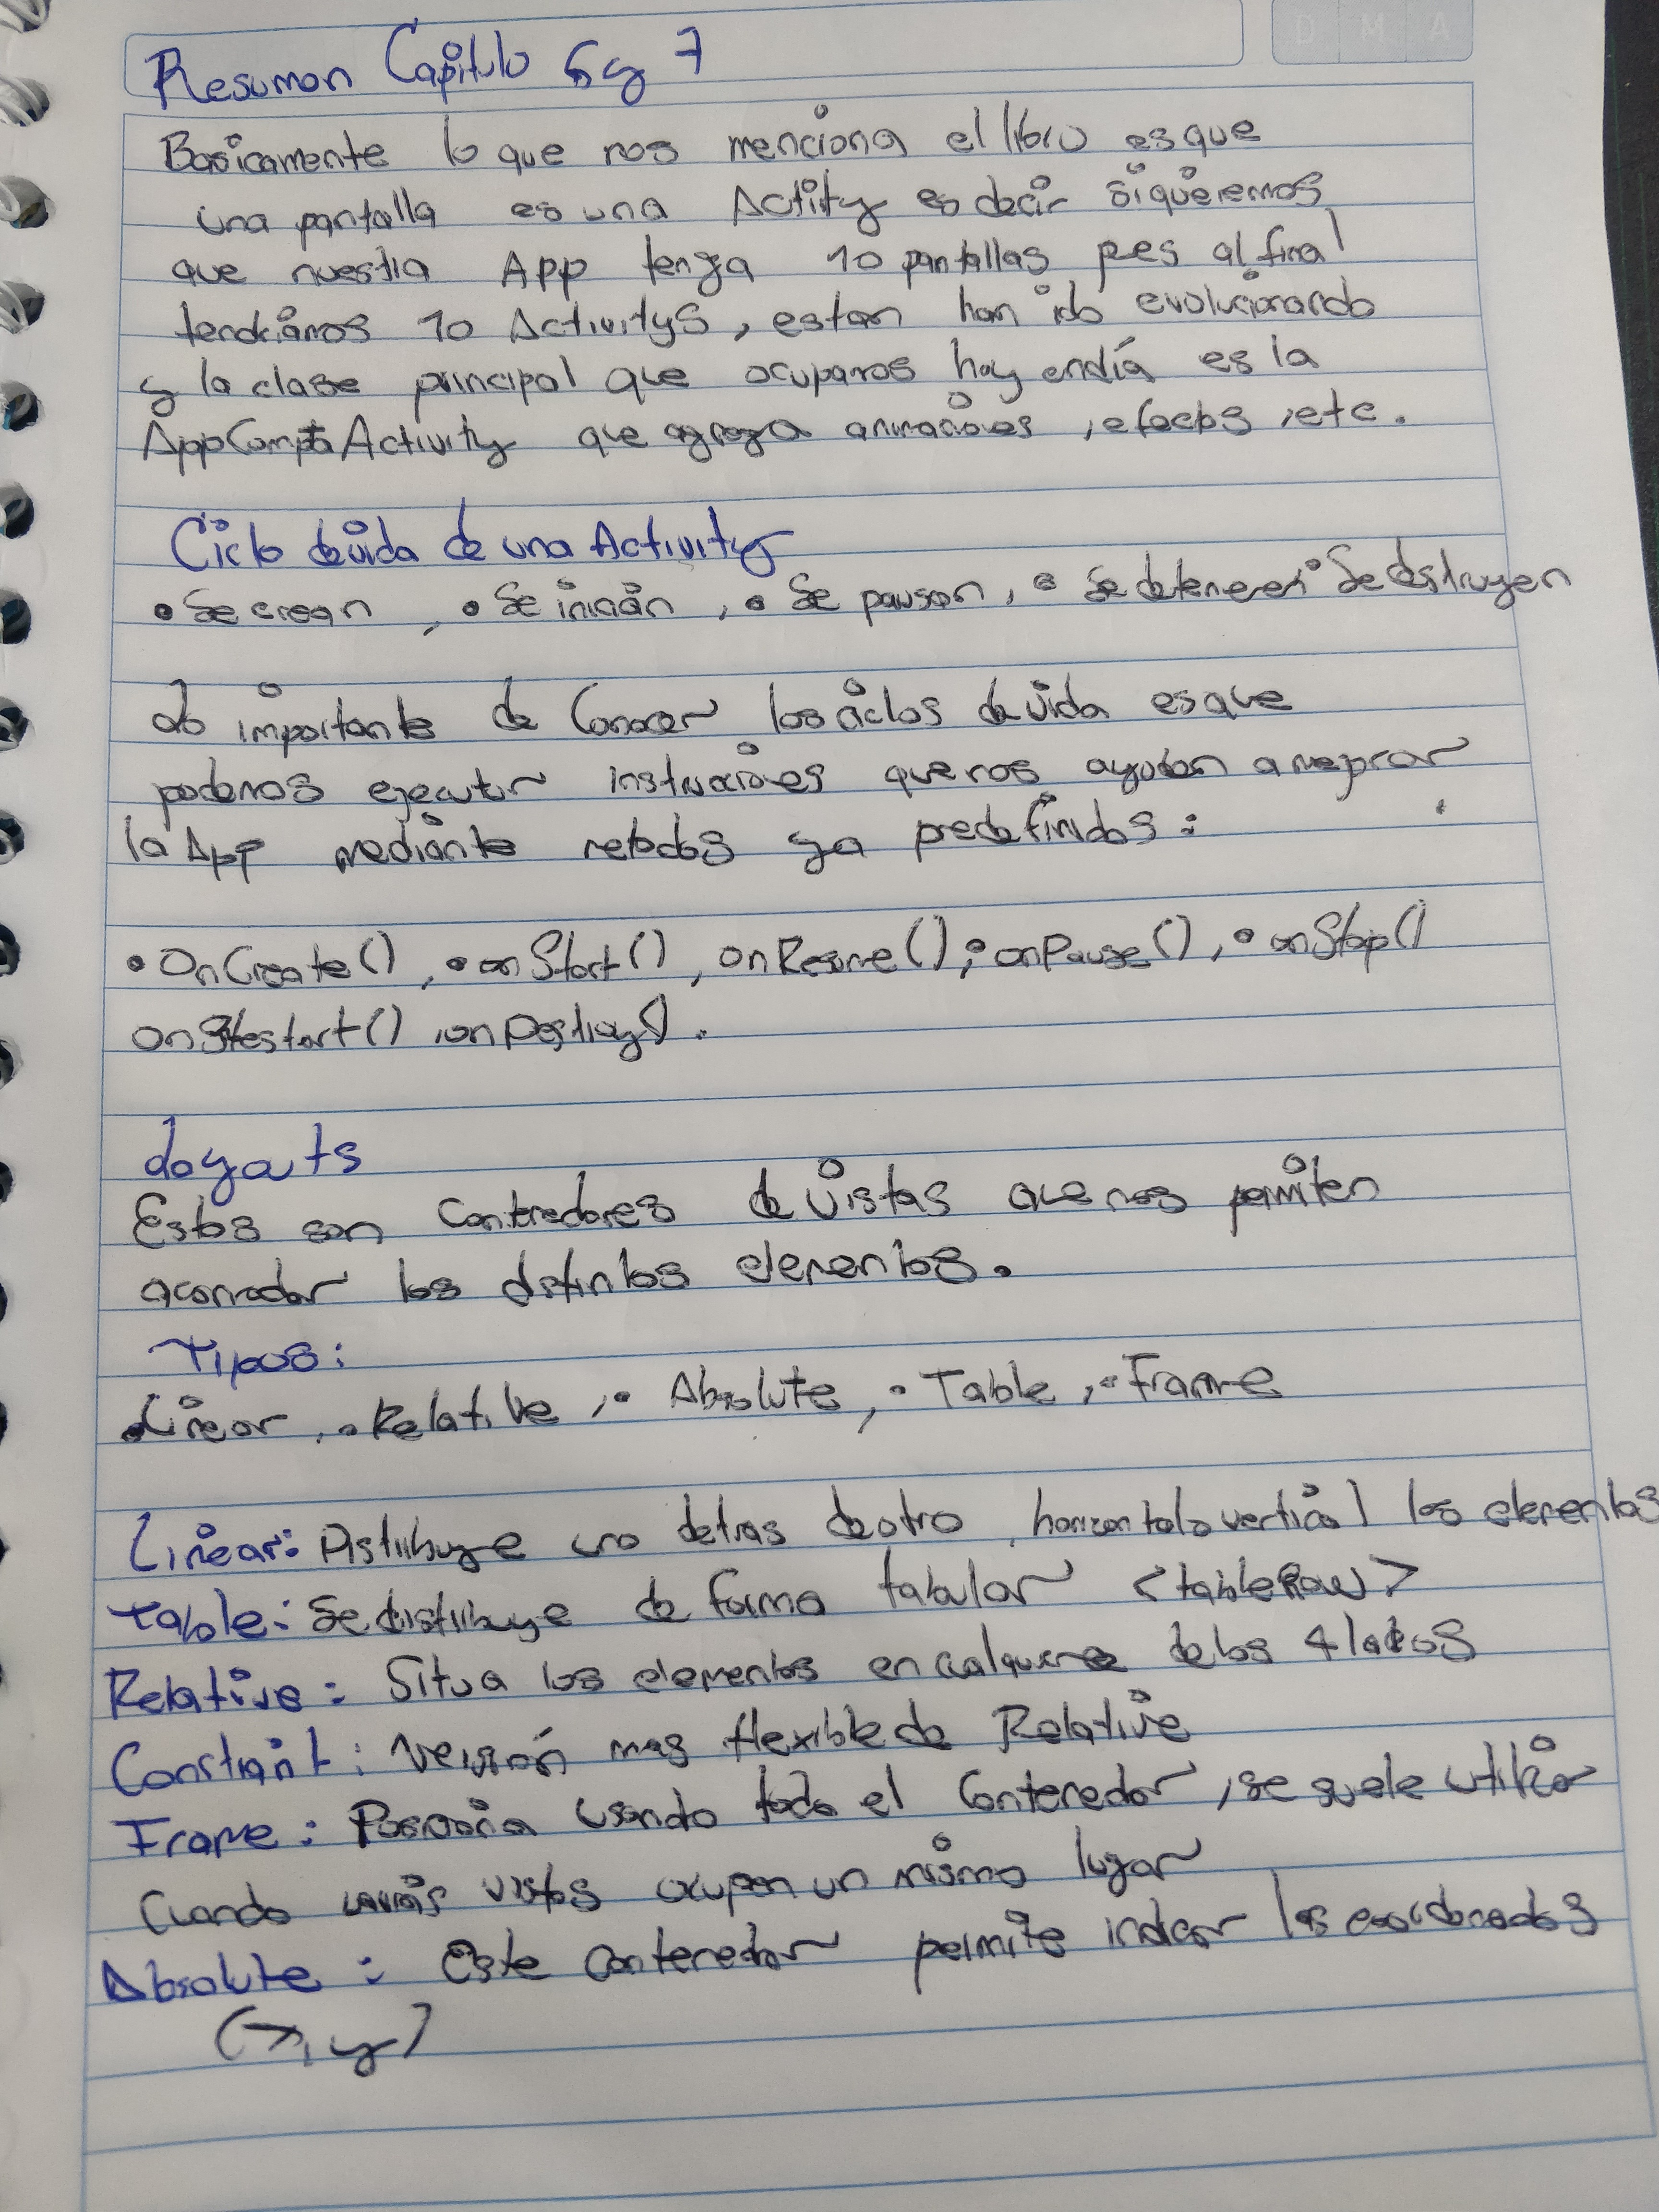 D M A
Resumen Capitulo 6 y 7
Basicamente lo que nos menciona el libro es que
una pantalla es una Actity es decir si queremos
que nuestra App tenga 10 pantallas pes al final
tendriamos 10 Activitys, estan han ido evolucionando
y la clase principal que ocupamos hoy en día es la
AppCompta Activity que agrega animaciones, efectos, etc.
Ciclo de vida de una Activity
• Se crean, • Se inician, • Se pausan, • Se detienen • Se destruyen
Lo importante de Conocer los ciclos de vida es que
podemos ejecutar instrucciones que nos ayudan a mejorar
la App mediante metodos ya predefinidos:
• OnCreate(), • onStart(), onResume(); • onPause(), • onStop()
onRestart(), onDestroy().
Layouts
Estos son Contenedores de Vistas que nos permiten
acomodar los distintos elementos.
Tipos:
• Linear, • Relative, • Absolute, • Table, • Frame
Linear: Distribuye uno detras de otro, horizontal o vertical los elementos
Table: Se distribuye de forma tabular <tableRow>
Relative: Situa los elementos en cualquiera de los 4 lados
Constraint: Versión mas flexible de Relative
Frame: Posiciona usando todo el Contenedor, se suele utilizar
Cuando varias vistas ocupen un mismo lugar
Absolute: Este contenedor permite indicar las
(x, y)